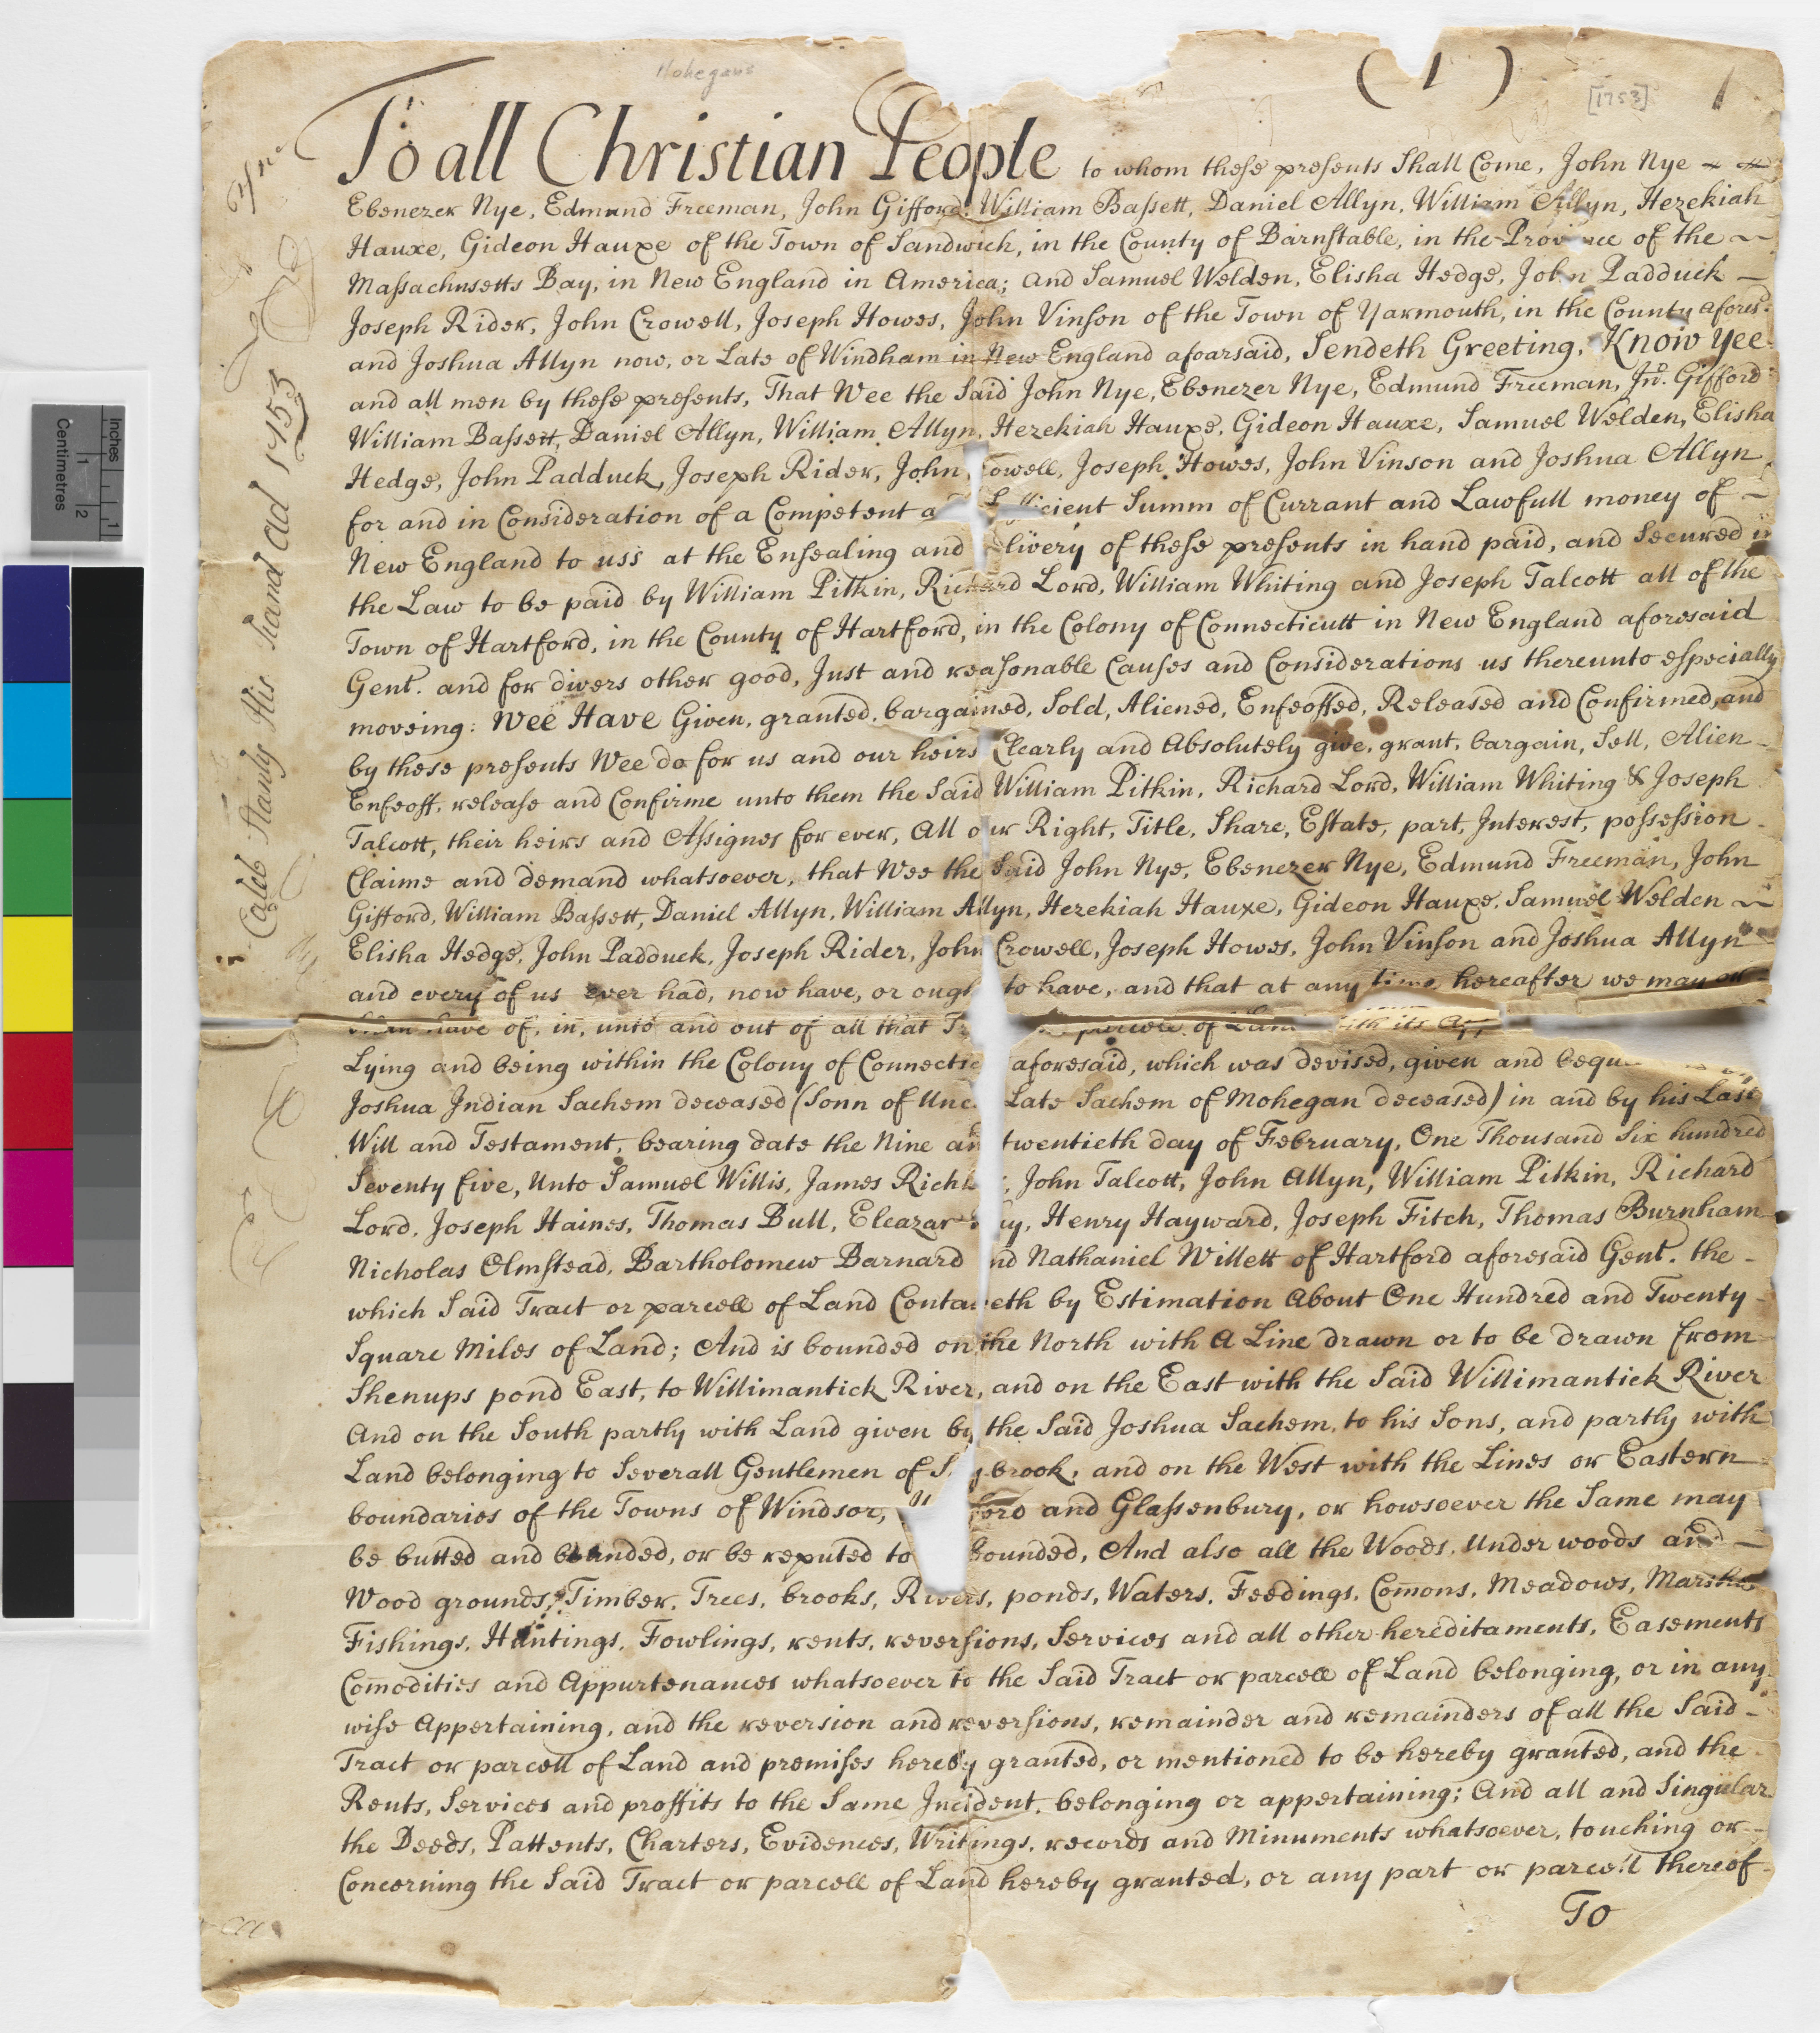 Mohegans
( 1 )
[1753]
To all Christian People to whom these presents Shall Come, John Nye
Ebenezer Nye, Edmund Freeman, John Gifford, William Bassett, Daniel Allyn, William Allyn, Hezekiah
Hauxe, Gideon Hauxe of the Town of Sandwich, in the County of Barnstable, in the Province of the
Massachusetts Bay, in New England in America; and Samuel Welden, Elisha Hedge, John Padduck
Joseph Rider, John Crowell, Joseph Howes, John Vinson of the Town of Yarmouth, in the County afores.d
and Joshua Allyn now, or Late of Windham in New England afoarsaid, Sendeth Greeting. Know Yee
and all men by these presents, That Wee the Said John Nye, Ebenezer Nye, Edmund Freeman, Jno. Gifford
William Bassett, Daniel Allyn, William Allyn, Hezekiah Hauxe, Gideon Hauxe, Samuel Welden, Elisha
Hedge, John Padduck, Joseph Rider, John owell, Joseph Howes, John Vinson and Joshua Allyn
for and in Consideration of a Competent a icient Summ of Currant and Lawfull money of
New England to uss at the Ensealing and livery of these presents in hand paid, and Secured in
the Law to be paid by William Pitkin, Richard Lord, William Whiting and Joseph Talcott all of the
Town of Hartford, in the County of Hartford, in the Colony of Connecticutt in New England aforesaid
Gent. and for divers other good, Just and reasonable Causes and Considerations us thereunto especially
moveing: Wee Have Given, granted, bargained, Sold, Aliened, Enfeoffed, Released and Confirmed, and
by these presents Wee do for us and our heirs Clearly and Absolutely give, grant, bargain, Sell, Alien
Enfeoff, release and Confirme unto them the Said William Pitkin, Richard Lord, William Whiting & Joseph
Talcott, their heirs and Assignes for ever, All our Right, Title, Share, Estate, part, Interest, possession
Claime and demand whatsoever, that Wee the Said John Nye, Ebenezer Nye, Edmund Freeman, John
Gifford, William Bassett, Daniel Allyn, William Allyn, Hezekiah Hauxe, Gideon Hauxe, Samuel Welden
Elisha Hedge, John Padduck, Joseph Rider, John Crowell, Joseph Howes, John Vinson and Joshua Allyn
and every of us ever had, now have, or ough to have, and that at any time hereafter we may or
have of, in, unto and out of all that of Land with its
Lying and being within the Colony of Connectic aforesaid, which was devised, given and bequ
Joshua Indian Sachem deceased (Sonn of Unc Late Sachem of Mohegan deceased) in and by his Last
Will and Testament, bearing date the Nine an twentieth day of February, One Thousand Six hundred
Seventy five, Unto Samuel Willis, James Rich , John Talcott, John Allyn, William Pitkin, Richard
Lord, Joseph Haines, Thomas Bull, Eleazar ay, Henry Hayward, Joseph Fitch, Thomas Burnham
Nicholas Olmstead, Bartholomew Barnard nd Nathaniel Willett of Hartford aforesaid Gent. the
which Said Tract or parcell of Land Conta eth by Estimation About One Hundred and Twenty
Square Miles of Land; And is bounded on the North with A Line drawn or to be drawn from
Shenups pond East, to Willimantick River, and on the East with the Said Willimantick River
And on the South partly with Land given by the Said Joshua Sachem, to his Sons, and partly with
Land belonging to Severall Gentlemen of S ybrook, and on the West with the Lines or Eastern
boundaries of the Towns of Windsor, ford and Glassenbury, or howsoever the Same may
be butted and bounded, or be reputed to bounded, And also all the Woods, Under woods and
Wood grounds, Timber, Trees, brooks, Rivers, ponds, Waters, Feedings, Comons, Meadows, Marshes
Fishings, Huntings, Fowlings, rents, reversions, Services and all other hereditaments, Easements
Comodities and Appurtenances whatsoever to the Said Tract or parcell of Land belonging, or in any
wise Appertaining, and the reversion and reversions, remainder and remainders of all the Said
Tract or parcell of Land and premises hereby granted, or mentioned to be hereby granted, and the
Rents, Services and proffits to the Same Incident, belonging or appertaining; And all and Singular
the Deeds, Pattents, Charters, Evidences, Writings, records and Minuments whatsoever, touching or
Concerning the Said Tract or parcell of Land hereby granted, or any part or parcell thereof
To
Caleb Stanly His hand ad 1753
Inches
1
Centimetres
1
2